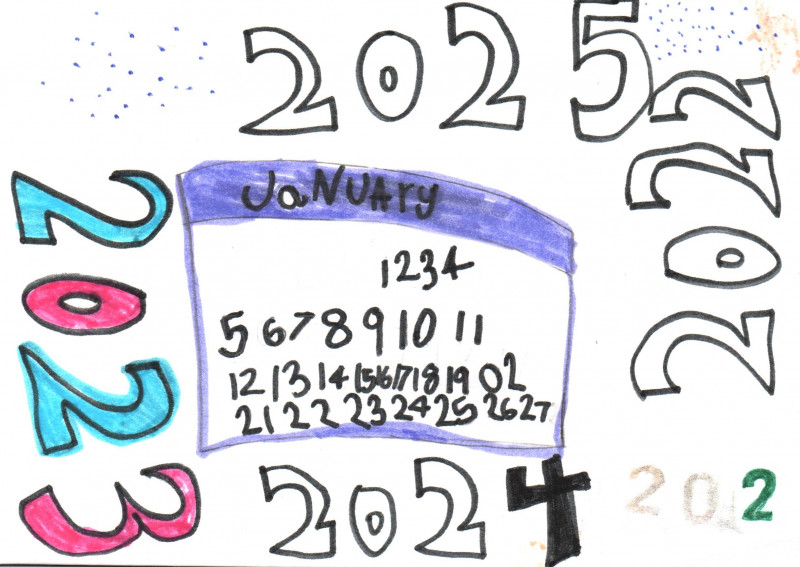 2025
2022
2023
JaNUAry
1 2 3 4
5 6 7 8 9 10 11
12 13 14 15 16 17 18 19 02
21 22 23 24 25 26 27
2024
202